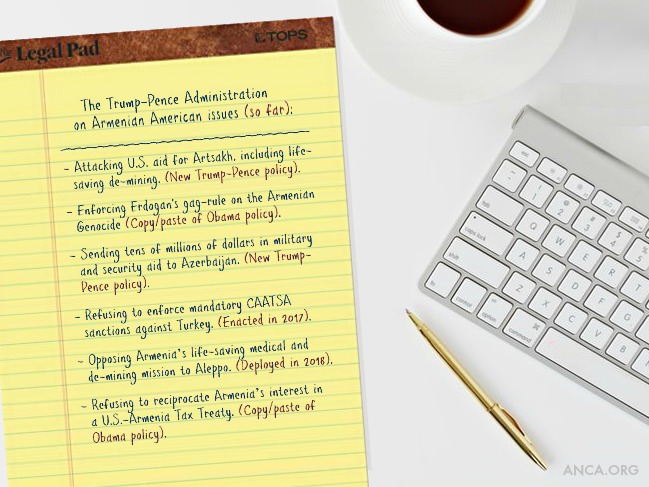 the Legal Pad
TOPS
The Trump-Pence Administration
on Armenian American issues (so far):
- Attacking U.S. aid for Artsakh, including life-
saving de-mining. (New Trump-Pence policy).
- Enforcing Erdogan's gag-rule on the Armenian
Genocide (Copy/paste of Obama policy).
- Sending tens of millions of dollars in military
and security aid to Azerbaijan. (New Trump-
Pence policy).
- Refusing to enforce mandatory CAATSA
sanctions against Turkey. (Enacted in 2017).
- Opposing Armenia's life-saving medical and
de-mining mission to Aleppo. (Deployed in 2018).
- Refusing to reciprocate Armenia's interest in
a U.S.-Armenia Tax Treaty. (Copy/paste of
Obama policy).
esc
~ `
! 1
@ 2
# 3
$ 4
% 5
tab
Q W E R T
caps lock
A S D F G
shift
Z X C V B
fn control option command
ANCA.ORG